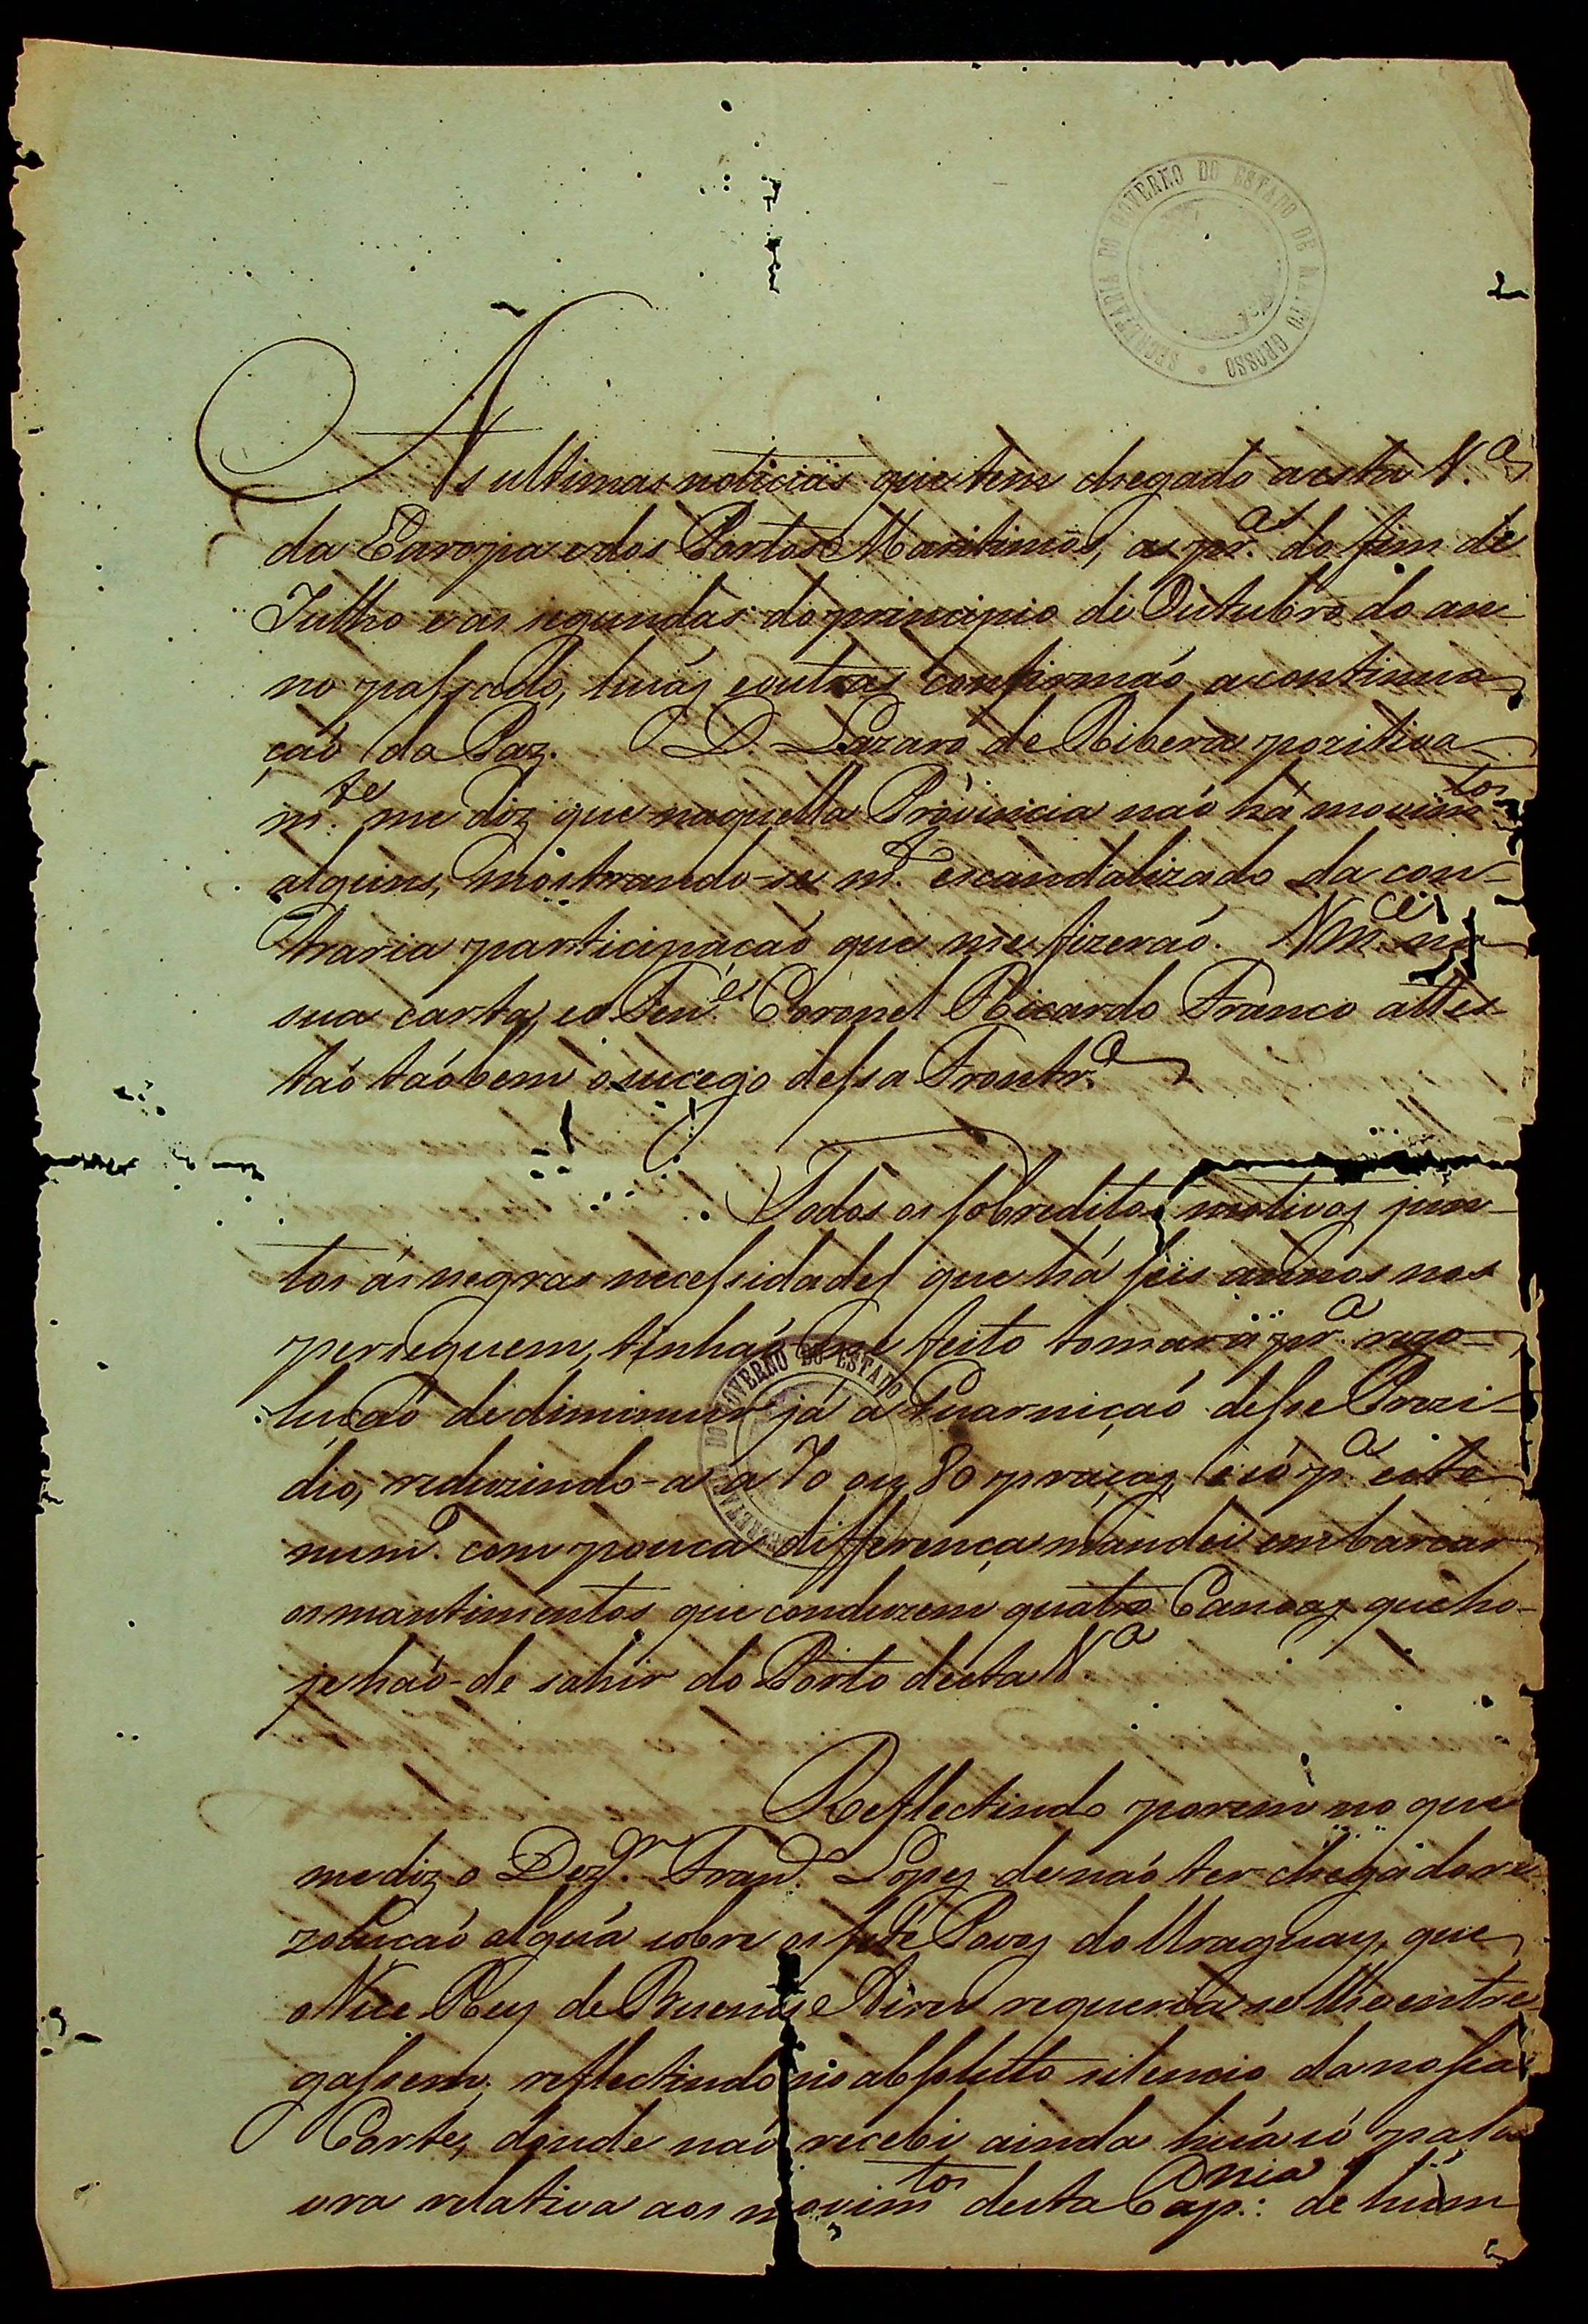 SECRETARIA DO GOVERNO DO ESTADO DE MATTO GROSSO
As ultimas noticias que tem chegado a esta V.ª
da Europa e dos Portos Maritimos, as pr.as do fim de
Julho e as segundas do principio de Outubro do an-
no passado, huãs e outras confirmaõ a continua-
çaõ da Paz. D. Lazaro de Ribera pozitiva-
m.te me diz que naquella Provincia naõ há movim.tos
alguns, mostrando-se m.to escandalizado da con-
traria participaçaõ que me fizeraõ. Vm.ce na
sua carta, e o Ten.e Coronel Ricardo Franco attes-
taõ taõbem o sucego dessa Frontr.ª
Todos os sobreditos motivos jun-
tos ás negras necessidades que há seis annos nos
perseguem, tinhaõ me feito tomar a pr.ª rezo-
luçaõ de diminuir já a Guarniçaõ desse Prezi-
dio, reduzindo-a a 70 ou 80 praças, e só p.ª este
num.º com pouca differença mandei embarcar
os mantimentos que conduzem quatro Canoas que ho-
je haõ-de sahir do Porto desta V.ª
SECRETARIA DO GOVERNO DO ESTADO
Reflectindo porem no que
me diz o Dez.or Fran.co Lopes de naõ ter chegado re-
zoluçaõ algũa sobre os sete Povos do Uraguay, que
o Vice Rey de Buenos Aires requeria se lhe entre-
gassem; reflectindo no absoluto silencio da nossa
Corte, donde naõ recebi ainda huã só pala-
vra relativa aos movim.tos desta Cap.nia: de hum